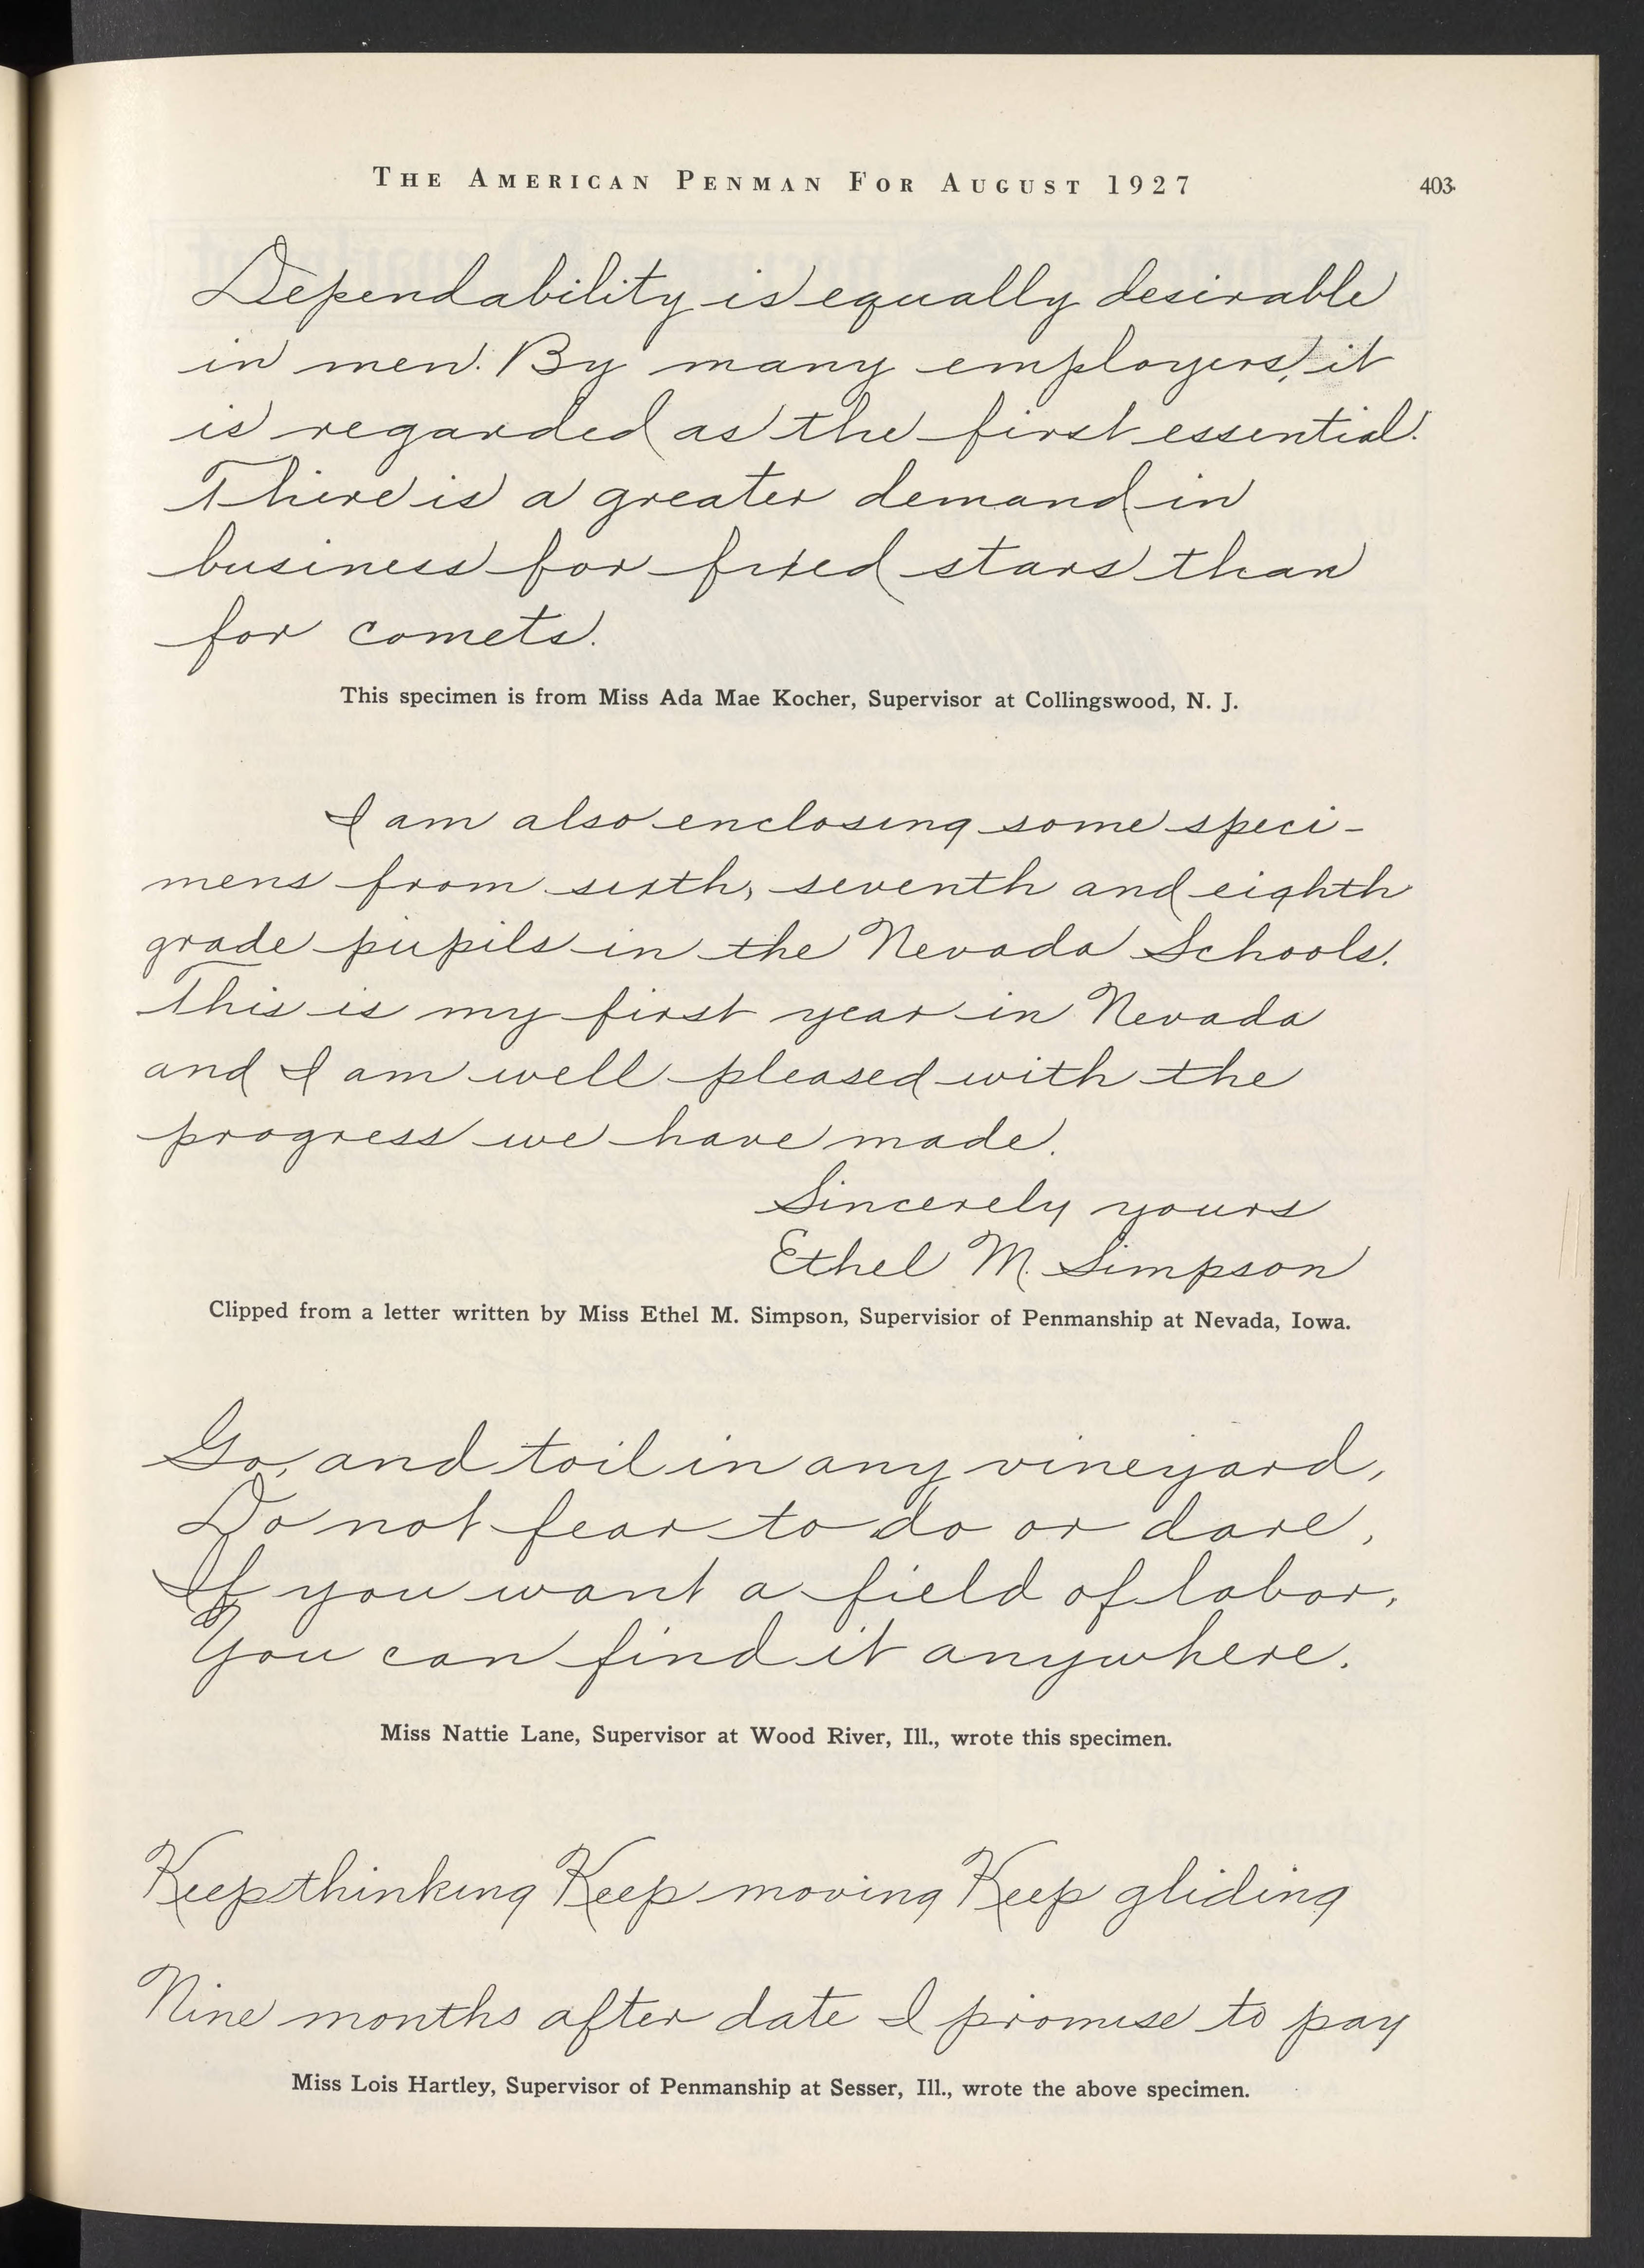 THE AMERICAN PENMAN FOR AUGUST 1927 403
Dependability is equally desirable
in men. By many employers, it
is regarded as the first essential.
There is a greater demand in
business for fixed stars than
for comets.
This specimen is from Miss Ada Mae Kocher, Supervisor at Collingswood, N. J.
I am also enclosing some speci-
mens from sixth, seventh and eighth
grade pupils in the Nevada Schools.
This is my first year in Nevada
and I am well pleased with the
progress we have made.
Sincerely yours
Ethel M. Simpson
Clipped from a letter written by Miss Ethel M. Simpson, Supervisior of Penmanship at Nevada, Iowa.
Go, and toil in any vineyard,
Do not fear to do or dare,
If you want a field of labor,
You can find it anywhere.
Miss Nattie Lane, Supervisor at Wood River, Ill., wrote this specimen.
Keep thinking Keep moving Keep gliding
Nine months after date I promise to pay
Miss Lois Hartley, Supervisor of Penmanship at Sesser, Ill., wrote the above specimen.